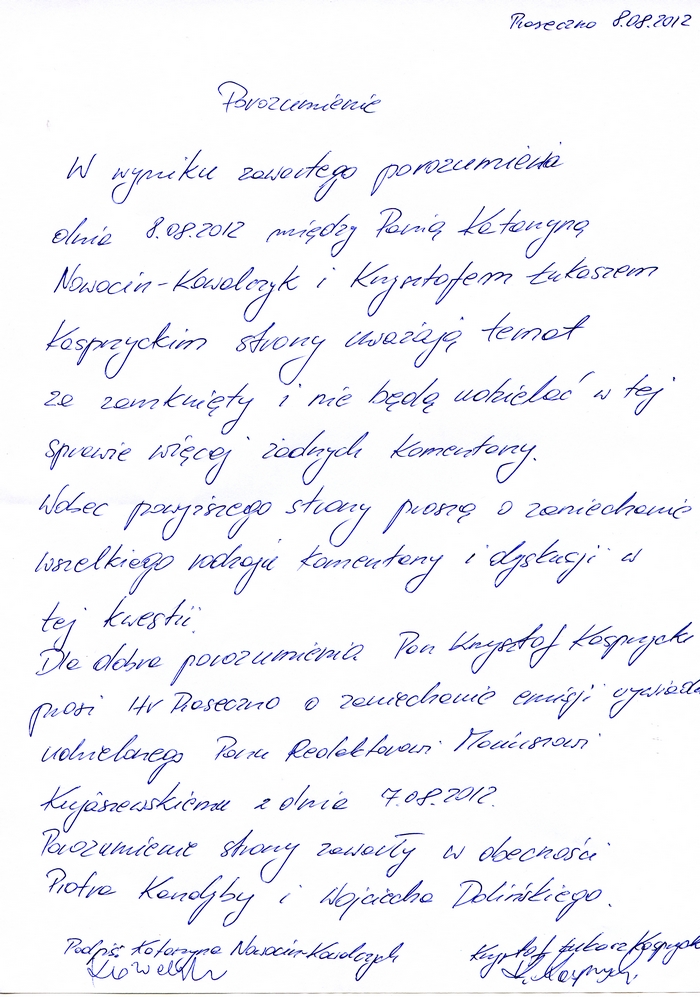 Piaseczno 8.08.2012
Porozumienie
W wyniku zawartego porozumienia
dnia 8.08.2012 między Panią Katarzyną
Nowocin-Kowalczyk i Krzysztofem Łukaszem
Kasprzyckim strony uważają temat
za zamknięty i nie będą udzielać w tej
sprawie więcej żadnych komentarzy.
Wobec powyższego strony proszą o zaniechanie
wszelkiego rodzaju komentarzy i dyskusji w
tej kwestii.
Dla dobra porozumienia Pan Krzysztof Kasprzycki
prosi itv Piaseczno o zaniechanie emisji wywiadu
udzielonego Panu Redaktorowi
z dnia 7.08.2012.
Porozumienie strony zawarły w obecności
Piotra Kandyby i Wojciecha Dolińskiego.
Podpis: Katarzyna Nowocin-Kowalczyk Krzysztof Łukasz Kasprzycki